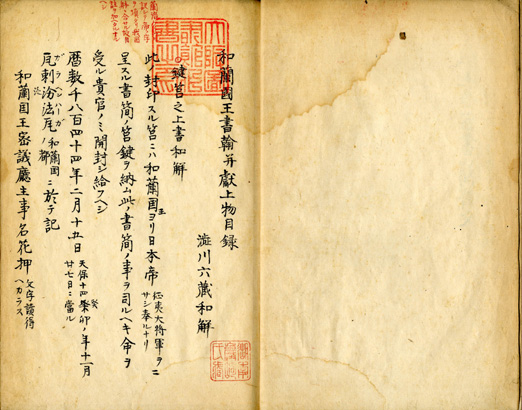 和蘭國王書翰并獻上物目録
澁川六蔵和解
鍵筥之上書和解
此ノ封印スル筥ニハ和蘭國王ヨリ日本帝征夷大将軍ヲサシ奉ルナリニ
呈スル書簡ノ筥鍵ヲ納ム此ノ書簡ノ事ヲ司ルヘキ命ヲ
受ル貴官ノミ開封シ給フヘシ
暦数千八百四十四年二月十五日天保十四癸卯ノ年十二月廿七日ニ當ル
和蘭国ノ都ニ於テ記
和蘭国王密議廳主事名花押文字讀得ヘカラス